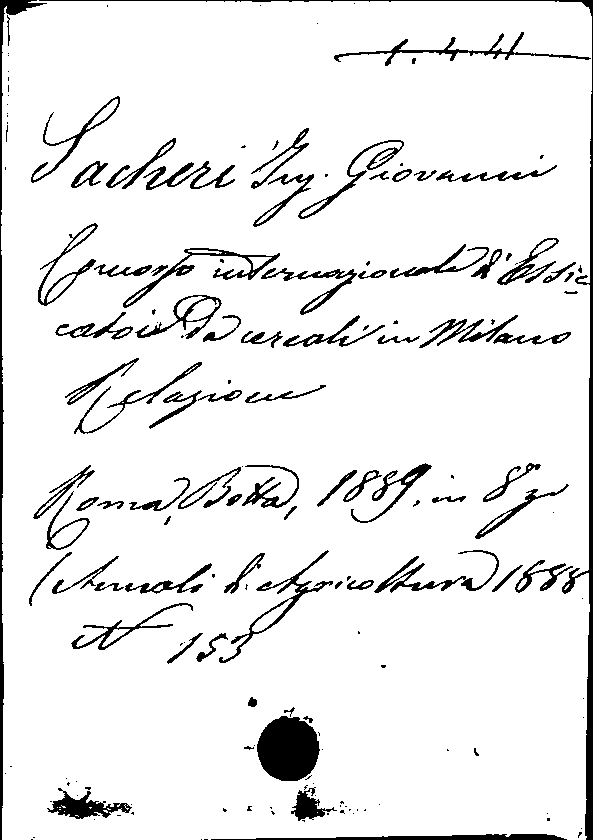 1.4.41
Sacheri Ing. Giovanni
Concorso internazionale d'Essic
catoi da cereali in Milano
Relazione
Roma, Botta, 1889, in 8° gr
(Annali di Agricoltura 1888
N 153